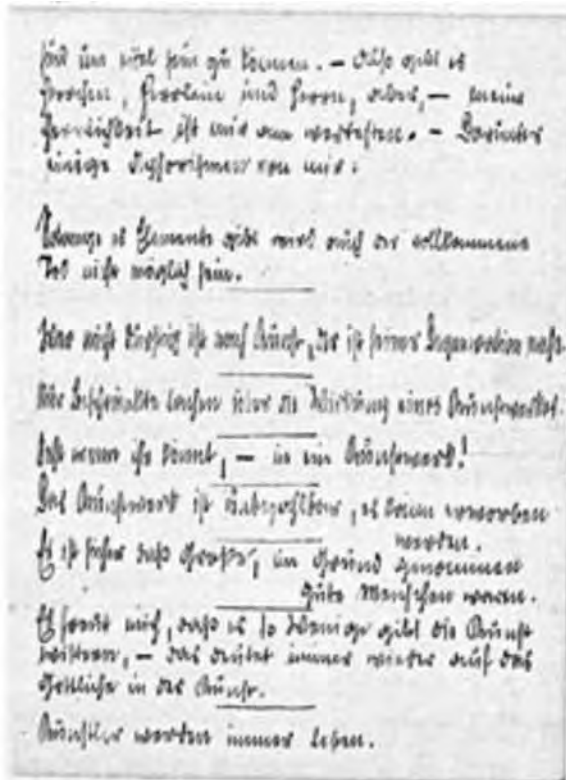 sein zu können. – Also gibt es
Herrchen, Herrlein und Herrn, aber, – meine
Herrlichkeit ist mir am wertesten. – Darunter
einige Aphorismen von mir:
Solange es Elemente gibt wird auch der vollkommene
Tod nicht möglich sein.
Wer nicht durstig ist nach Kunst, der ist seiner Degeneration nahe.
Nur Beschränkte lachen über die Wirkung eines Kunstwerkes.
Seht wenn ihr könnt, – in ein Kunstwerk!
Das Kunstwerk ist unbezahlbar, es kann erworben
werden.
Es ist sicher daß Große, im Grund genommen
gute Menschen waren.
Es freut mich, daß es so wenige gibt die Kunst
wittern, – das deutet immer wieder auf das
Göttliche in der Kunst.
Künstler werden immer leben.